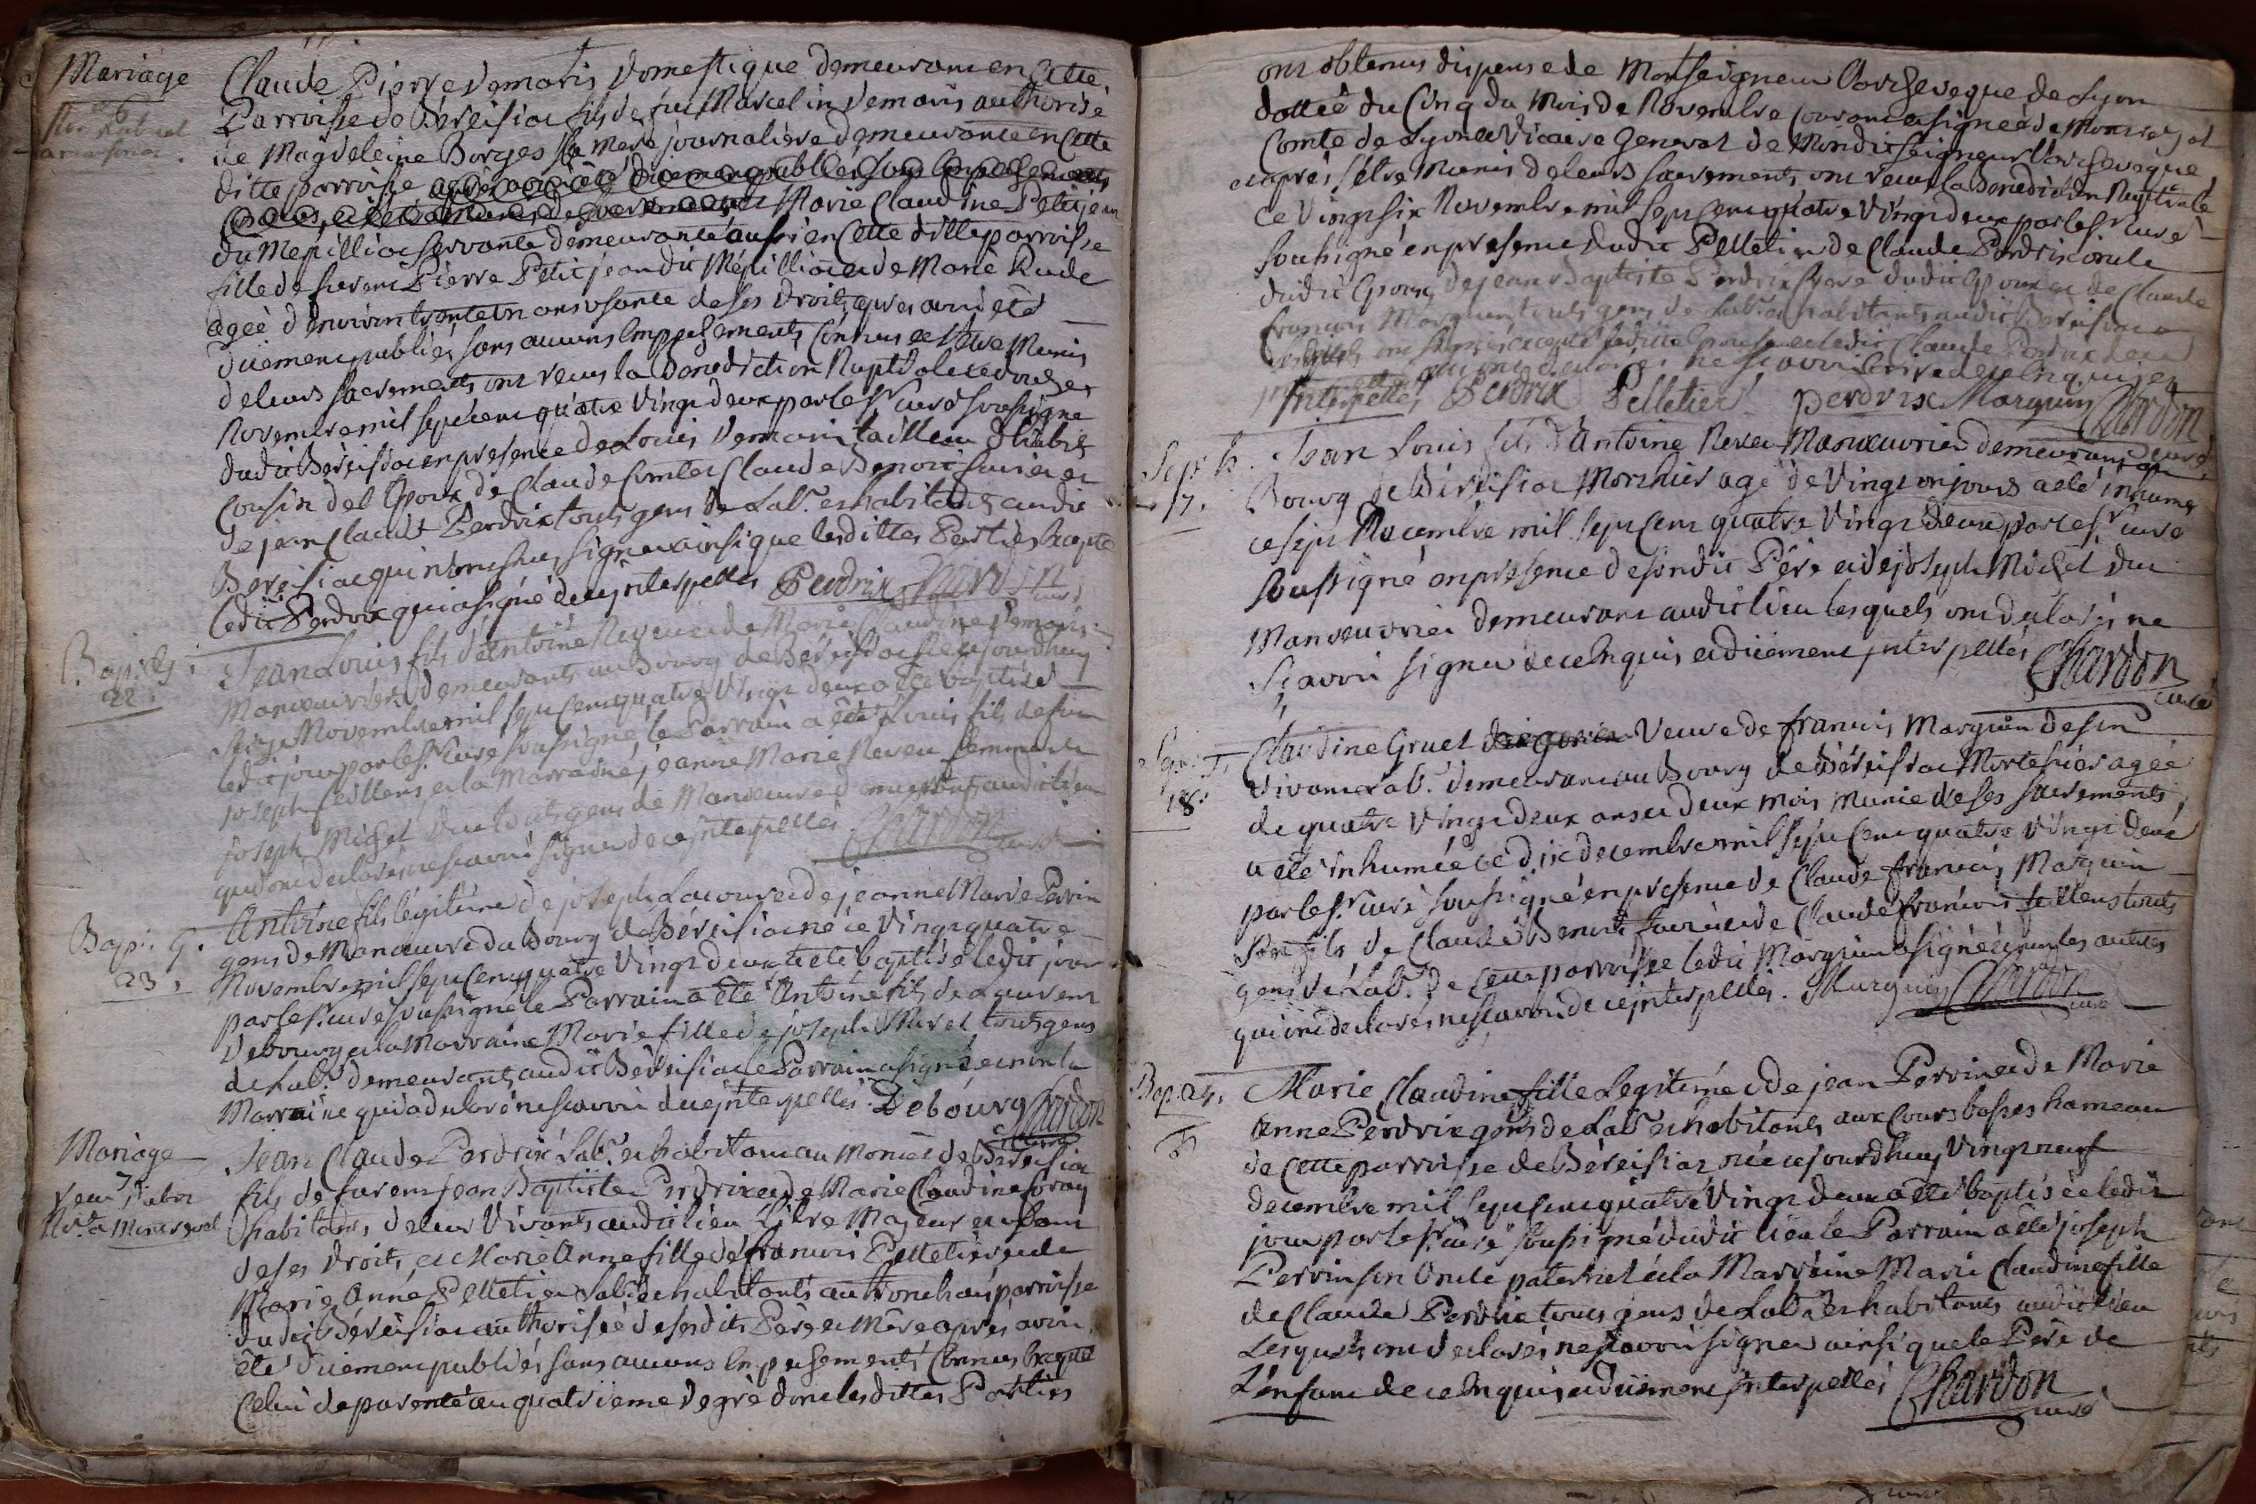 Mariage
6
Claude Pierre Demaris Domestique demeurant en Cette
Parroisse de Béreisiac fils de feu Marcelin Demaris authorisé
de Magdeleine Borges sa Mere journaliere demeurante en Cette
ditte parroisse
Marie Claudine Petitjean
du Mepilliac servante demeurante aussi en Cette ditte parroisse
fille de furent Pierre Petitjean dit Mépilliat et de Marie Rude
agée d'environ trente un ans usante de ses droits apres avoir été
düement publiés sans aucuns Empechements Connus et s'etre Munis
de leurs sacrements ont recus la Benediction Nuptiale ce douze
Novembre mil sept cent quatre vingt deux par le Sr Curé soussigné
dudit Béreisiac en presence de Louis Demaris tailleur d'habits
Cousin de l'Epoux de Claude Comtet Claude Benoit furier et
de jean Claude Perdrix tous gens de Labr. et habitants audit
Béreisiac qui n'ont sus signer ainsi que lesdittes Parties Excepté
ledit Perdrix qui a signé de ce jnterpellés Perdrix Chardon
Curé
Bap.
22.
Jean Louis fils d'Antoine Neveu et de Marie Claudine Demaris
Manoeuvriers demeurants au Bourg de Béreisiac né ce jourdhuy
seize Novembre mil sept Cent quatre Vingt deux a été baptisé
ledit jour par le Sr. Curé soussigné, le Parrain a été Louis fils de feu
joseph feillens et la Marraine jeanne Marie Neveu femme de
joseph Michel Duc touts gens de Manoeuvre demeurants audit lieu
qui ont declarés ne scavoir signer de ce jnterpellés. Chardon
Curé
Bap. G.
23.
Antoine fils légitime de joseph Lacour et de jeanne Marie Perrin
gens de Manoeuvre du Bourg de Béreisiac né ce Vingt quatre
Novembre mil sept Cent quatre Vingt deux a été baptisé ledit jour
par le Sr. curé soussigné le Parrain a été Antoine fils de Laurent
Debourg et la Marraine Marie fille de joseph Muret touts gens
de Labr. demeurants audit Béreisiac le Parrain a signé et non la
Marraine qui a declaré ne scavoir de ce jnterpellés. Debourg Chardon
Curé
Mariage
7
Jean Claude Perdrix Labr. et habitant au Moncet de Béreisiac
fils de furent jean Baptiste Perdrix et de Marie Claudine foray
habitants de leur Vivant audit lieu Libre Majeur et usant
de ses droits, et Marie Anne fille de francois Pelletier et de
Marie Anne Pelletier Labrs. et habitants au tronchai parroisse
dudit Béreisiac authorisée de sesdits Père et Mère apres avoir
été düement publiés sans aucuns Empechements Connus Excepté
Celui de parenté au quatrieme degré dont lesdittes Parties
ont obtenus dispense de Monseigneur l'archeveque de Lyon
dattée du Cinq du Mois de Novembre Courant signée de Montazet
Comte de Lyon et Vicaire General de Mondit seigneur l'archeveque
et après s'être Munis de leurs sacrements ont recus la Benediction Nuptiale
ce vingt six Novembre mil sept Cent quatre Vingt deux par le Sr Curé
soussigné en presence dudit Pelletier de Claude Perdrix oncle
dudit Epoux, de jean Baptiste Perdrix frere dudit Epoux et de Claude
francois Marguin touts gens de Labr. et habitants audit Béreisiac
lesquels ont signés excepté laditte Epouse et ledit Claude Perdrix
qui ont declarés ne scavoir Ecrire de ce Enquis et
jnterpellés Perdrix Pelletier perdrix Marguin Chardon
Curé
Sept. h.
17.
Jean Louis fils d'Antoine Neveu Manoeuvrier demeurant au
Bourg de Béreisiac Mort hier agé de Vingt un jours a été inhumé
ce sept Decembre mil sept Cent quatre Vingt deux par le Sr curé
soussigné en presence de sondit Père et de joseph Michel Duc
Manoeuvrier demeurant audit lieu lesquels ont declarés ne
scavoir signer de ce Enquis et düement jnterpellés Chardon
curé
18.
Claudine Gruet Veuve de francois Marguin de son
Vivant Labr. demeurant au Bourg de Béreisiac Morte hier agée
de quatre Vingt deux ans et deux mois Munie de ses sacrements
a été inhumée ce dix decembre mil sept Cent quatre Vingt deux
par le Sr. curé soussigné en presence de Claude francois Marguin
son fils de Claude Benoit furier et de Claude francois feillens touts
gens de Labr. de Cette parroisse ledit Marguin a signé et non les autres
qui ont declarés ne scavoir de ce jnterpellés. Marguin Chardon
curé
Bap. 24.
Marie Claudine fille Legitime de jean Perrin et de Marie
Anne Perdrix gens de Labr. et habitants aux Cours basses hameau
de Cette parroisse de Béreisiac née ce jourdhuy Vingt neuf
decembre mil sept Cent quatre Vingt deux a été baptisée ledit
jour par le Sr. curé soussigné dudit lieu le Parrain a été joseph
Perrin son Oncle paternel et la Marraine Marie Claudine fille
de Claude Perdrix tous gens de Labr. et habitants audit lieu
Lesquels ont declarés ne scavoir signer ainsi que le Père de
L'enfant de ce Enquis et düement jnterpellés Chardon
curé